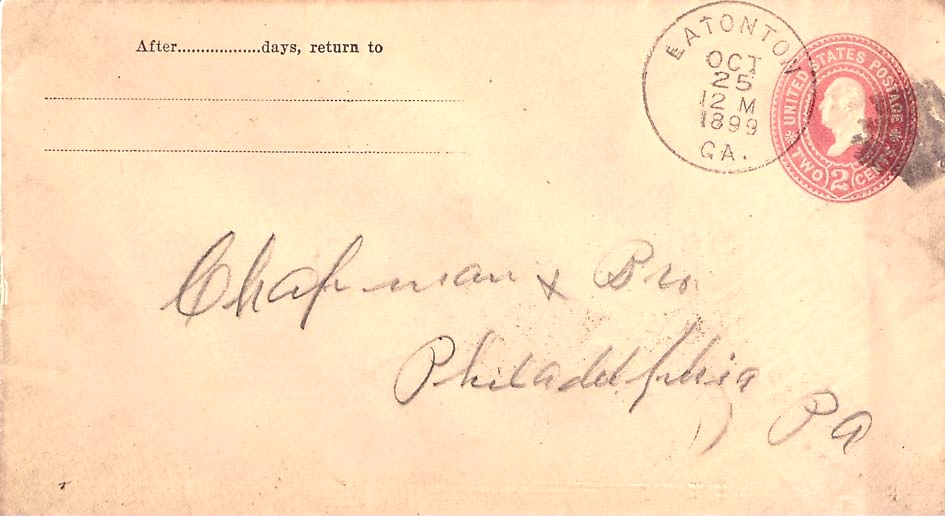 After..................days, return to
EATONTON
OCT
25
12 M
1899
GA.
UNITED STATES POSTAGE
TWO 2 CENTS
Chapman & Bro.
Philadelphia
Pa